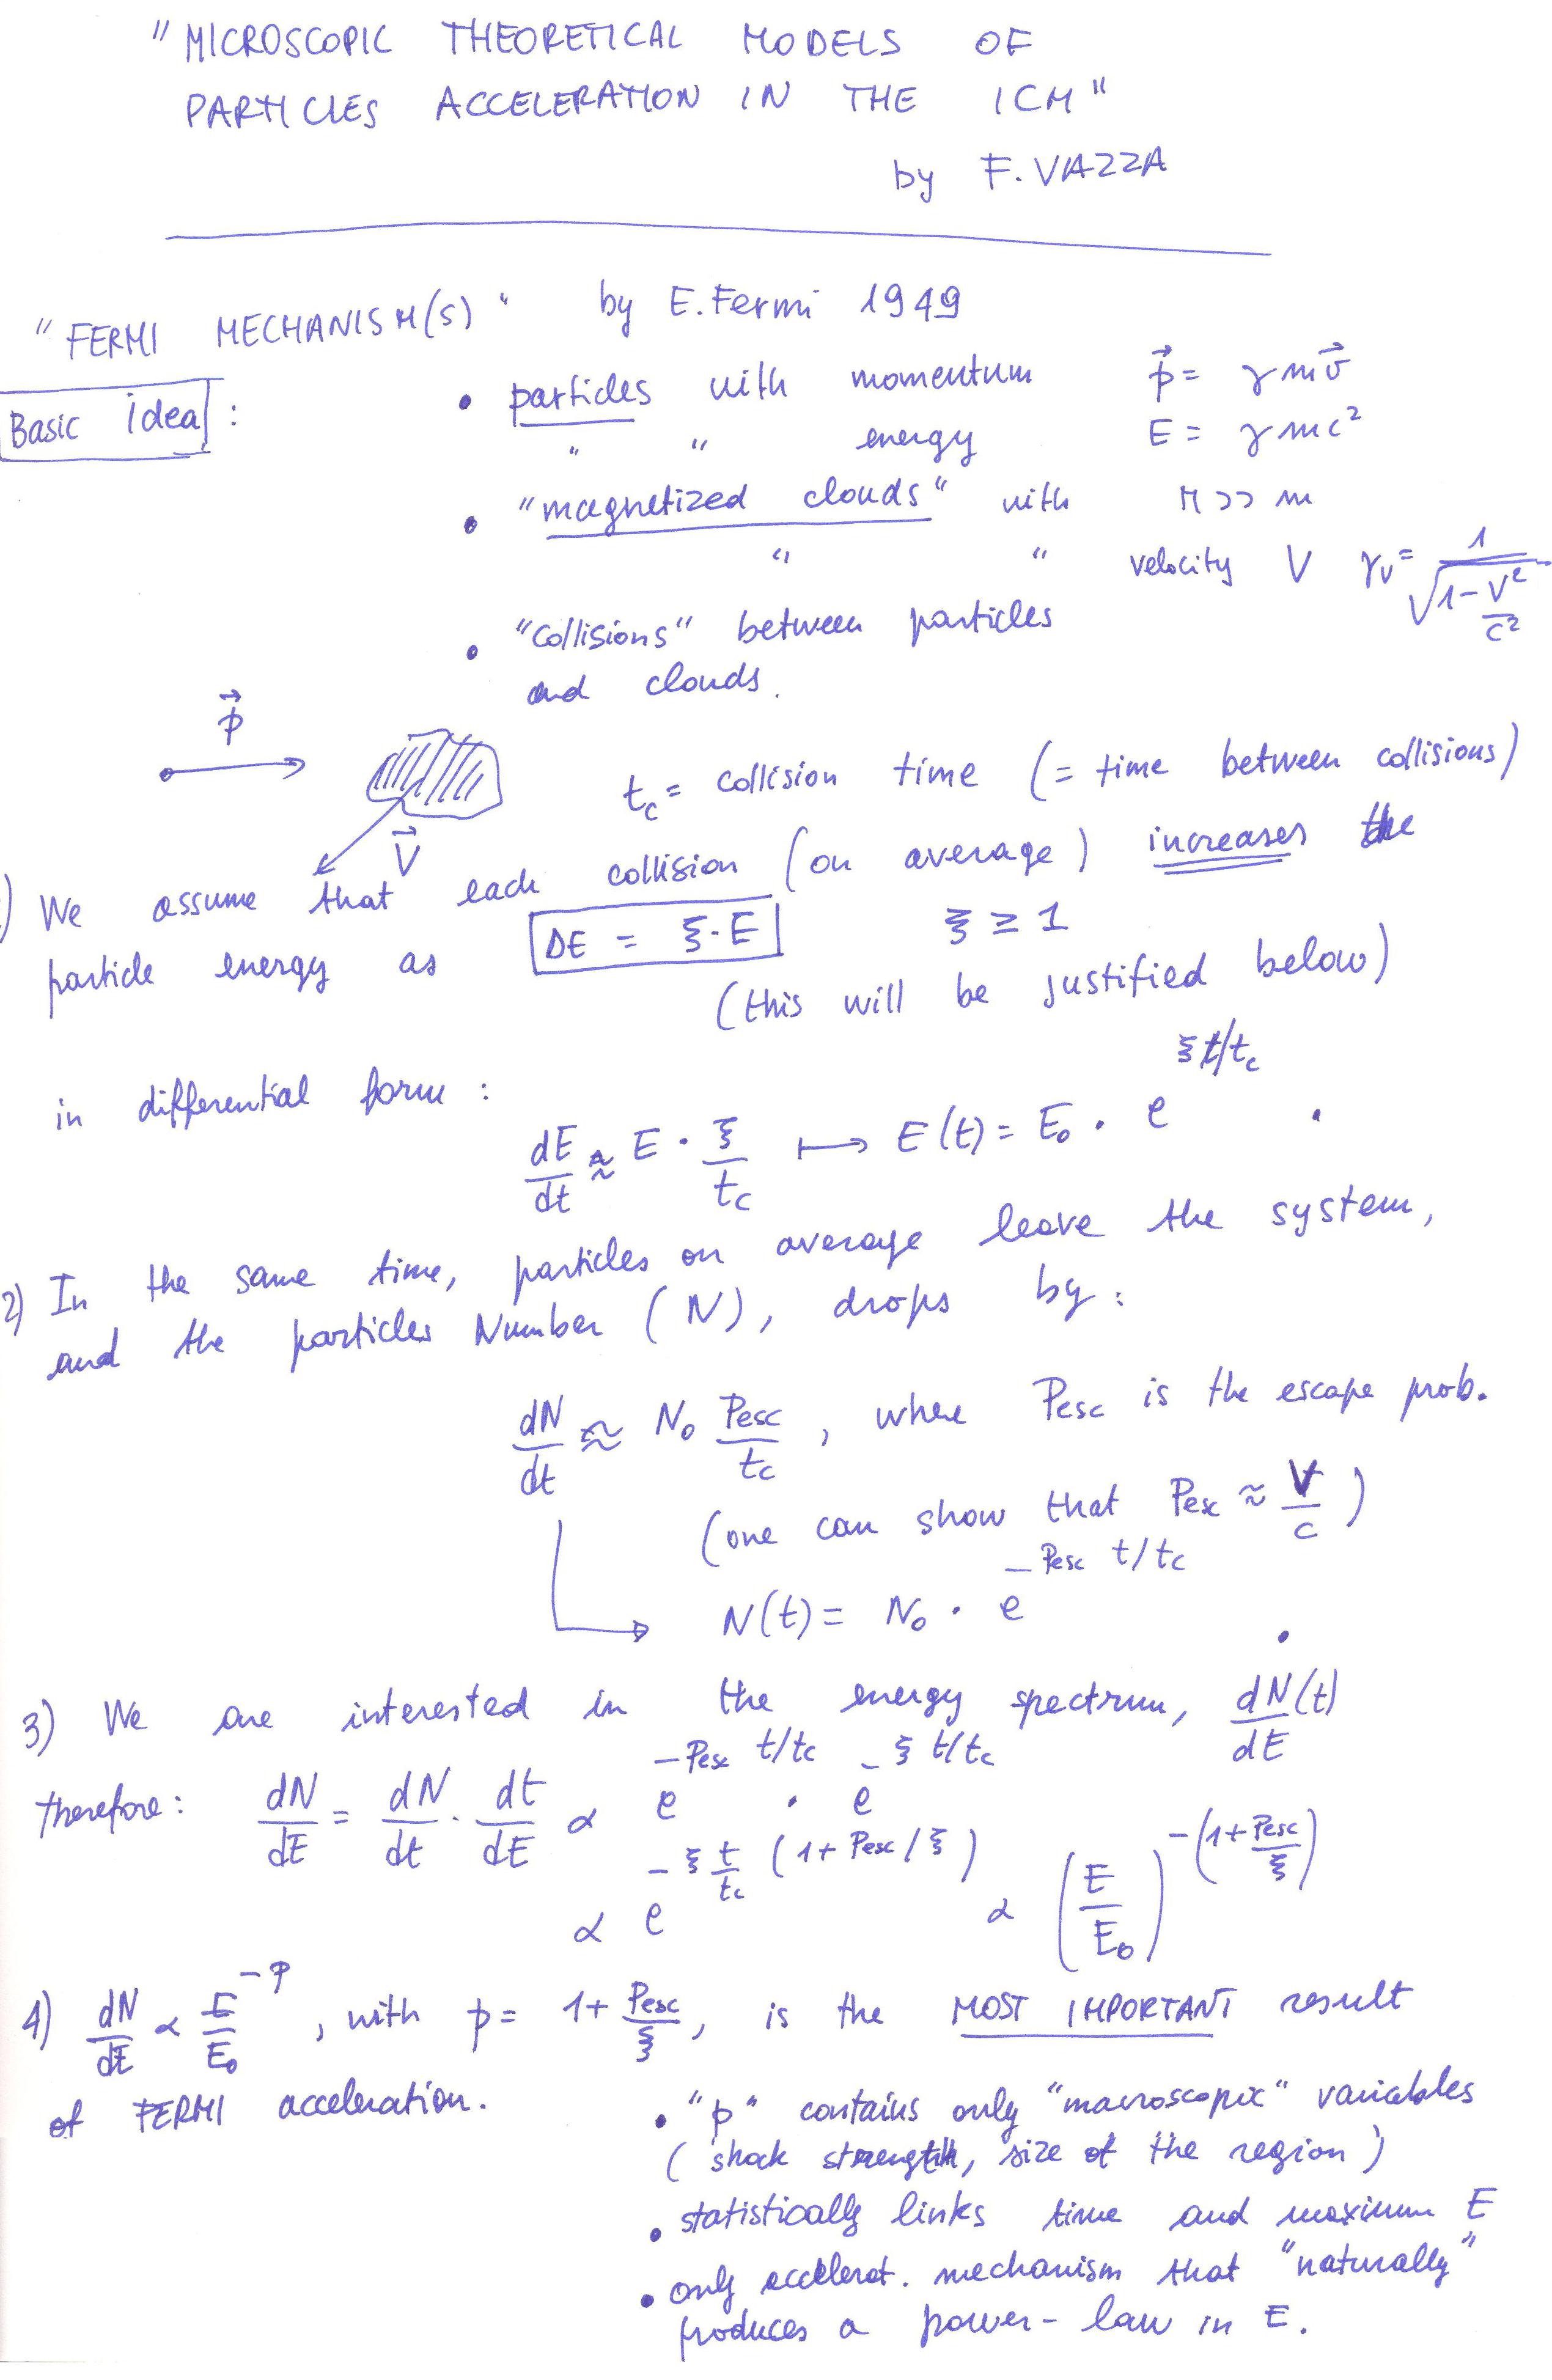 "MICROSCOPIC THEORETICAL MODELS OF
PARTICLES ACCELERATION IN THE ICM"
by F. VAZZA
"FERMI MECHANISM(S)" by E. Fermi 1949
Basic idea :
• particles with momentum p⃗ = γmv⃗
" " energy E = γmc²
• "magnetized clouds" with M >> m
" " velocity V γv = 1/√(1-V²/c²)
• "collisions" between particles
and clouds.
p⃗
V⃗
tc = collision time (= time between collisions)
) We assume that each collision (on average) increases the
particle energy as ΔE = ξ·E ξ ≥ 1
(this will be justified below)
in differential form :
dE/dt ≈ E · ξ/tc ↦ E(t) = E₀ · e^(ξ t/tc) .
2) In the same time, particles on average leave the system,
and the particles Number (N), drops by :
dN/dt ≈ N₀ Pesc/tc , where Pesc is the escape prob.
(one can show that Pesc ≈ V/c )
N(t) = N₀ · e^(-Pesc t/tc) .
3) We are interested in the energy spectrum, dN(t)/dE
therefore : dN/dE = dN/dt · dt/dE ∝ e^(-Pesc t/tc) · e^(-ξ t/tc)
∝ e^(-ξ t/tc (1+Pesc/ξ)) ∝ (E/E₀)^-(1+Pesc/ξ)
4) dN/dE ∝ E/E₀^-p , with p = 1+ Pesc/ξ , is the MOST IMPORTANT result
of FERMI acceleration.
• "p" contains only "macroscopic" variables
( shock strength, size of the region )
• statistically links time and maximum E
• only accelerat. mechanism that "naturally"
produces a power-law in E.